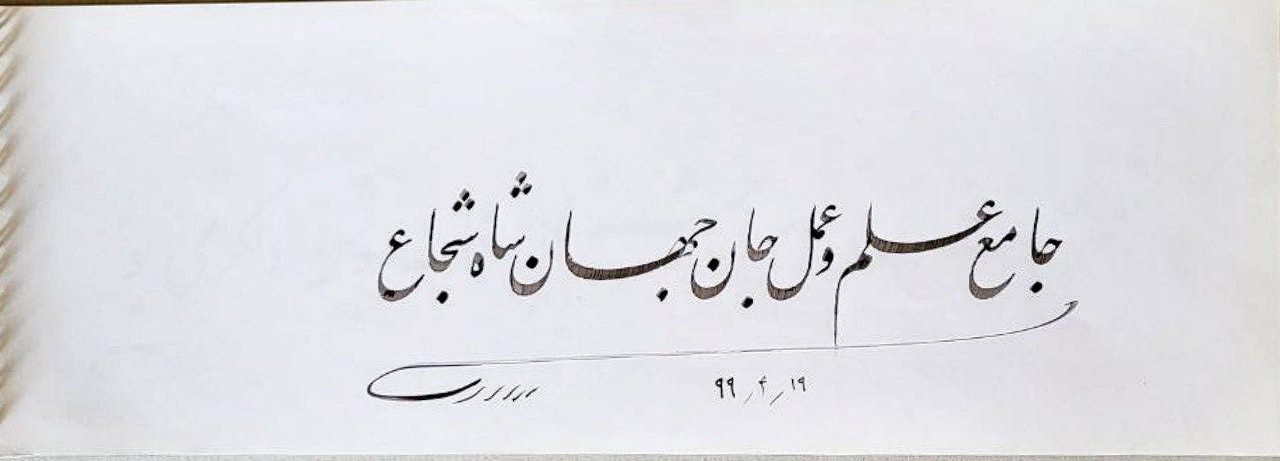 جامع علم و عمل جان جهان شاه شجاع
۹۹٫۴٫۱۹